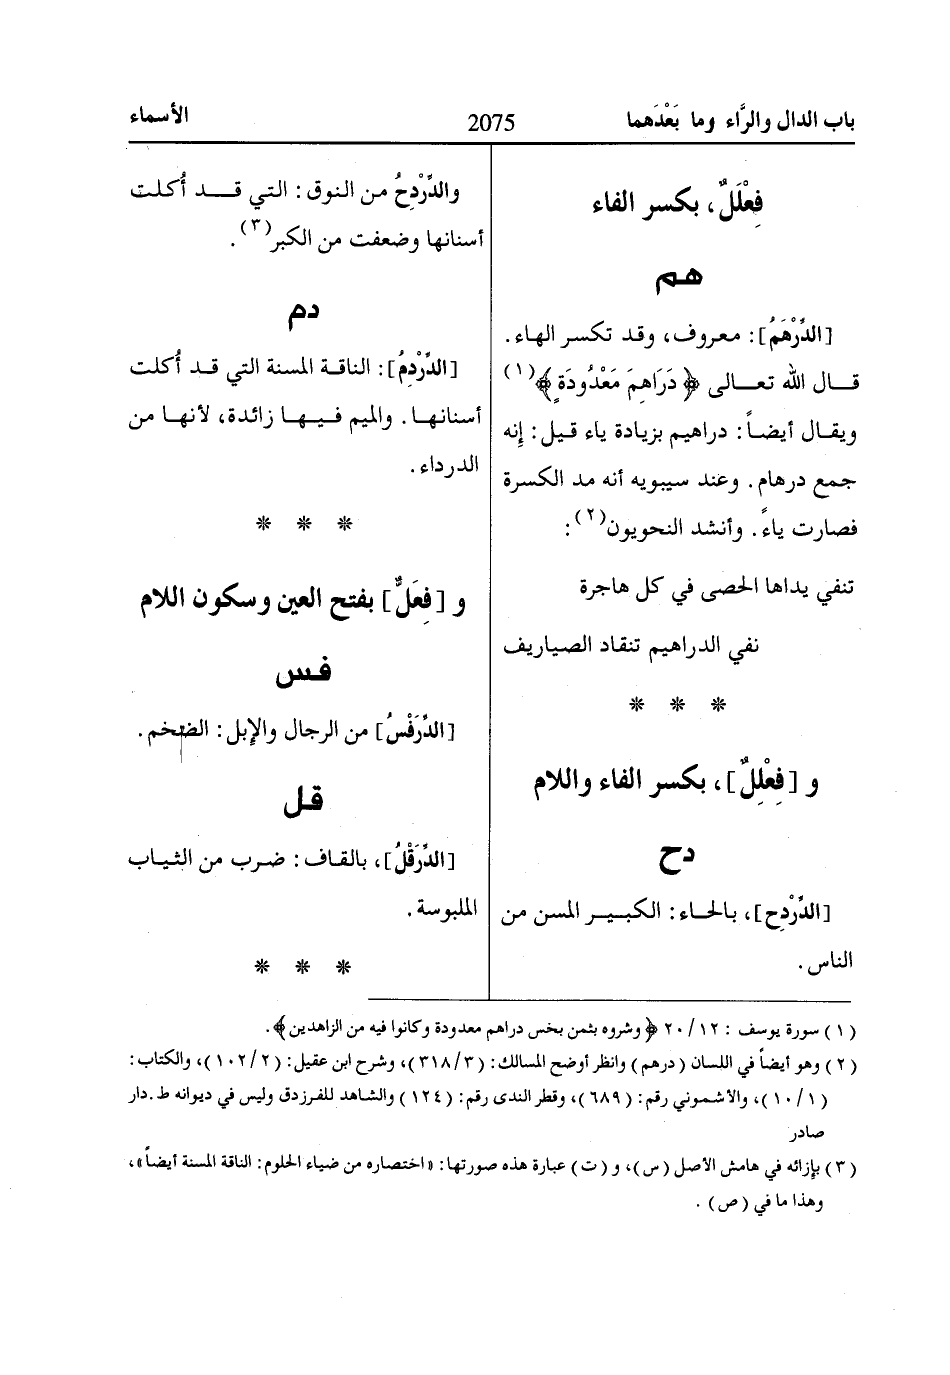 باب الدال والرَّاء وما بَعْدَهما
2075
الأسماء
فِعْلَلٌ، بكسر الفاء
هـم
[الدِّرْهَمُ]: معروف، وقد تكسر الهاء.
قـال الله تعـالى ﴿دَرَاهِمَ مَعْدُودَةٍ﴾(١)
ويقـال أيضـاً: دراهيم بزيادة ياء قيل: إنه
جمع درهام. وعند سيبويه أنه مد الكسرة
فصارت ياءً. وأنشد النحويون(٢):
تنفي يداها الحصى في كل هاجرة
نفي الدراهيم تنقاد الصياريف
* * *
و [فِعْلِلٌ]، بكسر الفاء واللام
دح
[الدِّرْدِح]، بالحـاء: الكبيـر المسن من
الناس.
والدِّرْدِحُ من النوق: التي قـد أُكلت
أسنانها وضعفت من الكبر(٣).
دم
[الدِّرْدِمُ]: الناقة المسنة التي قـد أُكلت
أسنانهـا. والميم فـيـهـا زائدة، لأنهـا من
الدرداء.
* * *
و [فِعَلٌّ] بفتح العين وسكون اللام
فس
[الدِّرَفْسُ] من الرجال والإبل: الضخم.
قل
[الدِّرَقْلُ]، بالقـاف: ضـرب من الثيـاب
الملبوسة.
* * *
(١) سورة يوسف: ٢٠/١٢ ﴿وشروه بثمن بخس دراهم معدودة وكانوا فيه من الزاهدين﴾.
(٢) وهو أيضاً في اللسان (درهم) وانظر أوضح المسالك: (٣١٨/٣)، وشرح ابن عقيل: (١٠٢/٢)، والكتاب:
(١٠/١)، والأشموني رقم: (٦٨٩)، وقطر الندى رقم: (١٢٤) والشاهد للفرزدق وليس في ديوانه ط.دار
صادر
(٣) بإزائه في هامش الأصل (س)، و(ت) عبارة هذه صورتها: «اختصاره من ضياء الحلوم: الناقة المسنة أيضاً»،
وهذا ما في (ص).